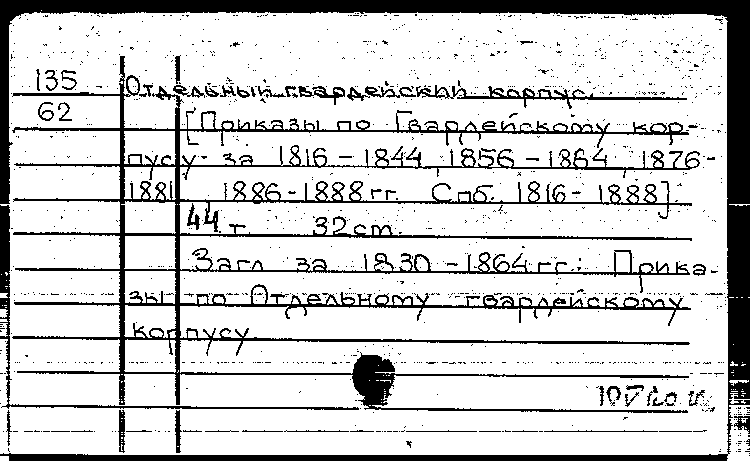 135
Отдельный гвардейский корпус.
62
[Приказы по Гвардейскому кор-
пусу за 1816 – 1844, 1856 – 1864, 1876-
1881, 1886-1888 гг. Спб., 1816 - 1888].
44 т. 32 cm.
Загл. за 1830 - 1864 гг.: Прика-
зы по Отдельному гвардейскому
корпусу